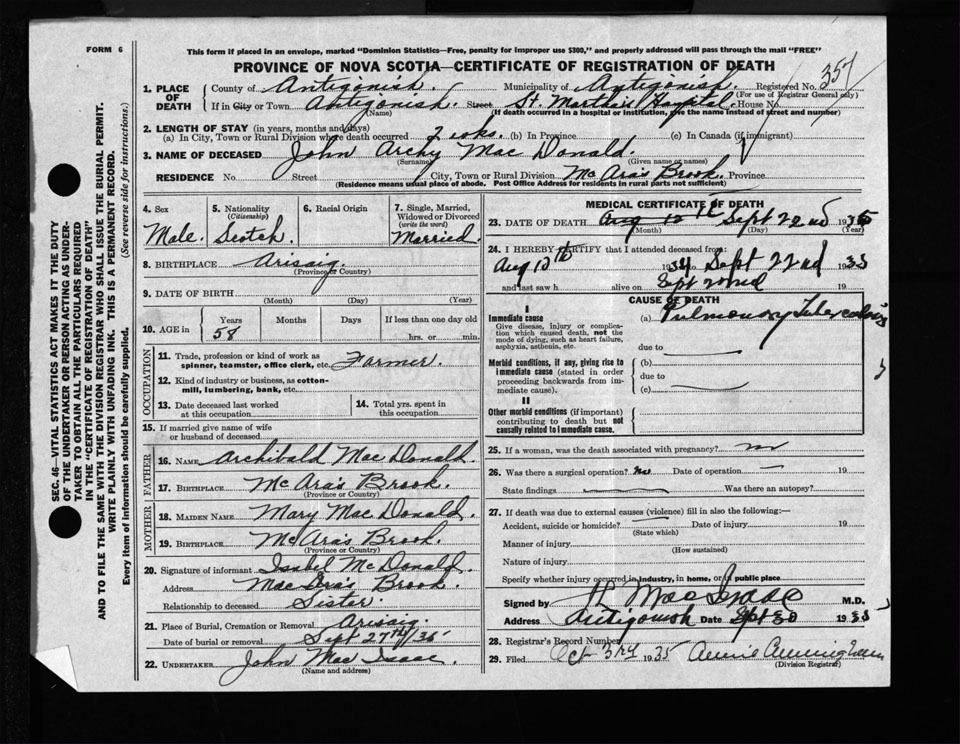 FORM 6
This form if placed in an envelope, marked "Dominion Statistics—Free, penalty for improper use $300," and properly addressed will pass through the mail "FREE"
PROVINCE OF NOVA SCOTIA—CERTIFICATE OF REGISTRATION OF DEATH
SEC. 46—VITAL STATISTICS ACT MAKES IT THE DUTY
OF THE UNDERTAKER OR PERSON ACTING AS UNDER-
TAKER TO OBTAIN ALL THE PARTICULARS REQUIRED
IN THE "CERTIFICATE OF REGISTRATION OF DEATH"
AND TO FILE THE SAME WITH THE DIVISION REGISTRAR WHO SHALL ISSUE THE BURIAL PERMIT.
WRITE PLAINLY WITH UNFADING INK. THIS IS A PERMANENT RECORD.
Every item of information should be carefully supplied. (See reverse side for instructions.)
1. PLACE OF DEATH
County of Antigonish. Municipality of Antigonish. Registered No. 357
(For use of Registrar General only)
If in City or Town Antigonish. Street St. Martha's Hospital. House No.
(Name) (If death occurred in a hospital or institution, give the name instead of street and number)
2. LENGTH OF STAY (in years, months and days)
(a) In City, Town or Rural Division where death occurred 2 wks. (b) In Province (c) In Canada (if immigrant)
3. NAME OF DECEASED John Archy Mac Donald.
(Surname) (Given name or names)
RESIDENCE No. Street City, Town or Rural Division Mc Ara's Brook. Province
(Residence means usual place of abode. Post Office Address for residents in rural parts not sufficient)
4. Sex
Male.
5. Nationality
(Citizenship)
Scotch.
6. Racial Origin
7. Single, Married,
Widowed or Divorced
(write the word)
Married.
8. BIRTHPLACE Arisaig.
(Province or Country)
9. DATE OF BIRTH
(Month) (Day) (Year)
10. AGE in
Years Months Days If less than one day old
58 hrs. or min.
OCCUPATION
11. Trade, profession or kind of work as
spinner, teamster, office clerk, etc. Farmer.
12. Kind of industry or business, as cotton-
mill, lumbering, bank, etc.
13. Date deceased last worked
at this occupation
14. Total yrs. spent in
this occupation
15. If married give name of wife
or husband of deceased
FATHER
16. NAME Archibald Mac Donald.
17. BIRTHPLACE Mc Ara's Brook.
(Province or Country)
MOTHER
18. MAIDEN NAME Mary Mac Donald.
19. BIRTHPLACE McAra's Brook.
(Province or Country)
20. Signature of informant Isabel McDonald.
Address Mac Ara's Brook.
Relationship to deceased Sister.
21. Place of Burial, Cremation or Removal Arisaig.
Date of burial or removal Sept 27th/35
22. UNDERTAKER John Mac Isaac.
(Name and address)
MEDICAL CERTIFICATE OF DEATH
23. DATE OF DEATH Aug 12th Sept 22nd 1935
(Month) (Day) (Year)
24. I HEREBY CERTIFY that I attended deceased from:
Aug 10th 1934 Sept 22nd 1935
and last saw h alive on Sept 22nd 19
CAUSE OF DEATH
I
Immediate cause
Give disease, injury or complica-
tion which caused death, not the
mode of dying, such as heart failure,
asphyxia, asthenia, etc.
(a) Pulmonary Tuberculosis
due to
Morbid conditions, if any, giving rise to
immediate cause (stated in order
proceeding backwards from im-
mediate cause).
(b)
due to
(c)
II
Other morbid conditions (if important)
contributing to death but not
causally related to immediate cause.
25. If a woman, was the death associated with pregnancy?
26. Was there a surgical operation? no Date of operation — 19
State findings Was there an autopsy?
27. If death was due to external causes (violence) fill in also the following:—
Accident, suicide or homicide? Date of injury 19
(State which)
Manner of injury
(How sustained)
Nature of injury
Specify whether injury occurred in industry, in home, or in public place
Signed by H MacIsaac M.D.
Address Antigonish Date Sept 30 1935
28. Registrar's Record Number
29. Filed Oct 3rd 1935 Annie Cunningham
(Division Registrar)